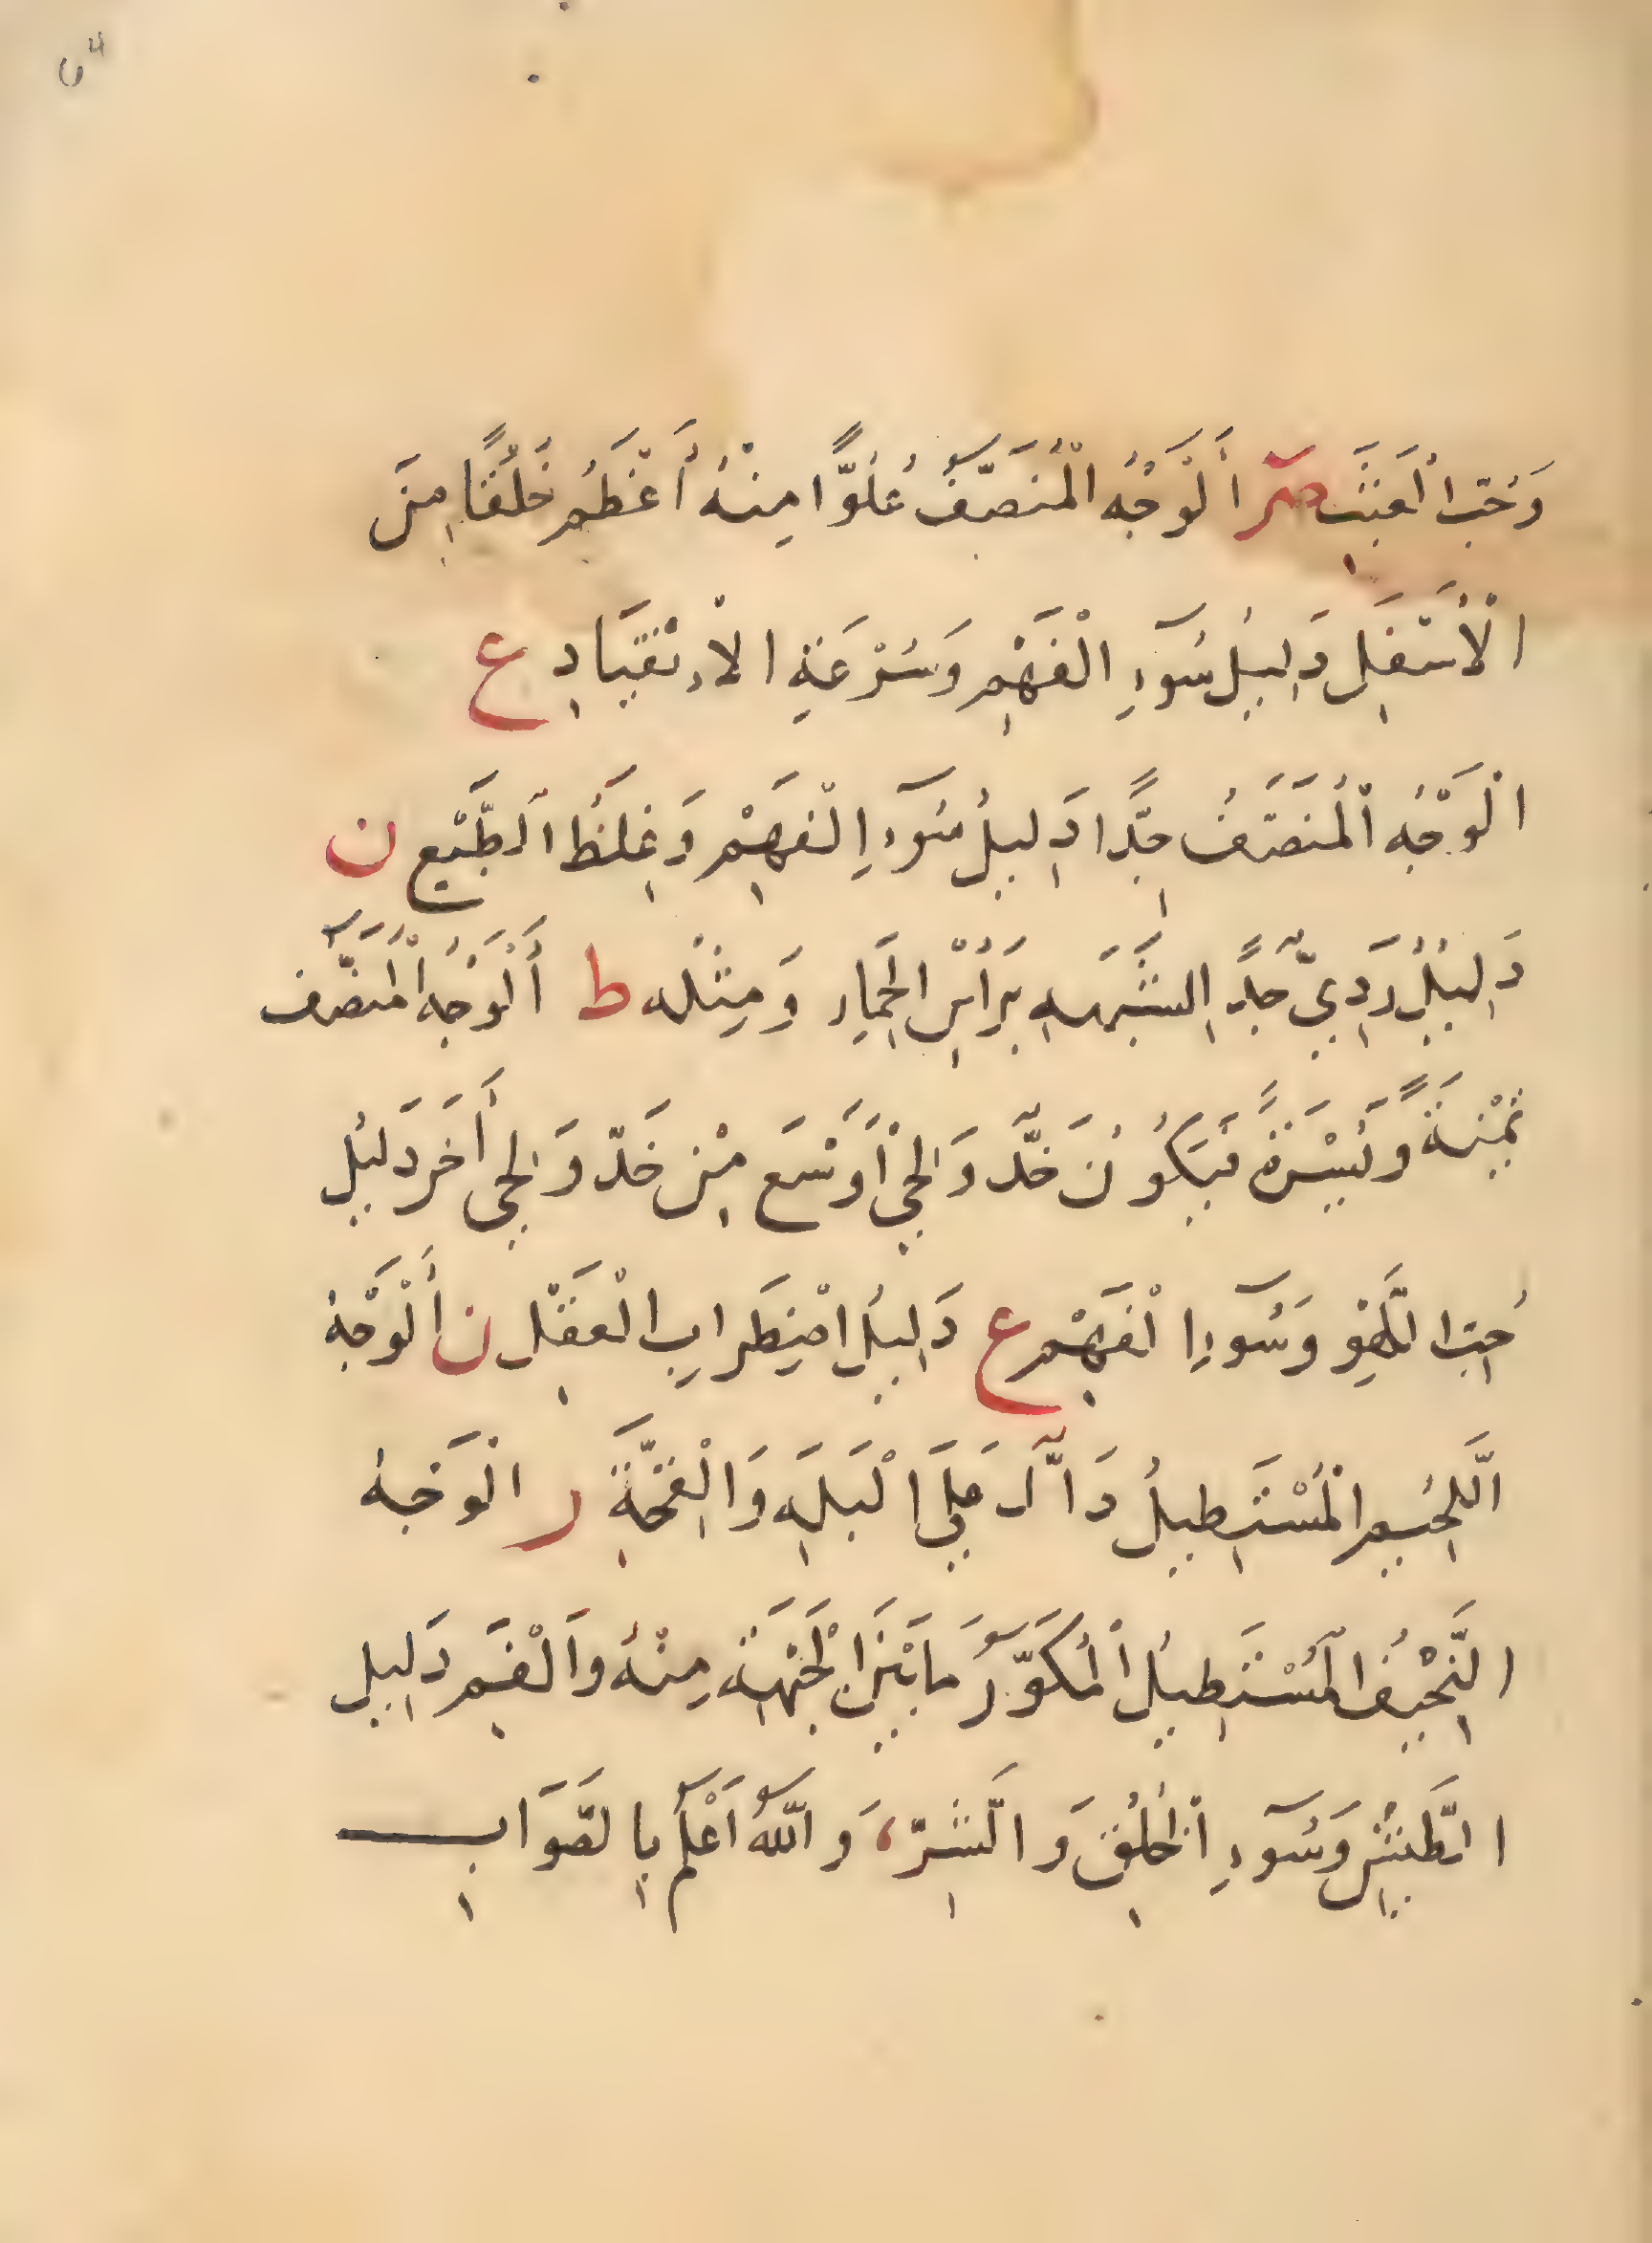 وَحُبِّ الْعَبَثِ صر أَلْوَجْهُ الْمُنَصَّفُ عُلُوًّا مِنْهُ أَعْظَمُ خَلْقًا مِنَ
الْأَسْفَلِ دَلِيلُ سُوٓءِ الْفَهْمِ وَسُرْعَةِ الاِنْقِيَادِ ع
الْوَجْهُ الْمُنَصَّفُ جِدًّا دَلِيلُ سُوٓءِ الْفَهْمِ وَغِلَظِ الطَّبْعِ ن
دَلِيلُ رَدِيّ جِدًّا لِشَبَهِهِ بِرَأْسِ الْحِمَارِ وَمِثْلُه ط أَلْوَجْهُ الْمُنَصَّف
يَمْنَةً وَيَسْرَةً فَيَكُونُ خَدّ وَلِحْي أَوْسَعَ مِنْ خَدّ وَلِحْي أَخَر دَلِيلُ
حُبِّ اللَّهْوِ وَسُوٓءِ الْفَهْمِ ع دَلِيلُ اضْطِرَابِ الْعَقْلِ ن أَلْوَجْهُ
اللَّحِيمُ الْمُسْتَطِيلُ دَآلّ عَلَى الْبَلَهِ وَالْقِحَّةِ ر الْوَجْهُ
النَّحِيفُ الْمُسْتَطِيلُ الْمُكَوَّرُ مَا بَيْنَ الْجَبْهَةِ مِنْهُ وَالْفَمِ دَلِيل
الطَّيْشِ وَسُوٓءِ الْخُلُقِ وَالشَّرِّ، وَاللّٰهُ أَعْلَمُ بِالصَّوَابِ